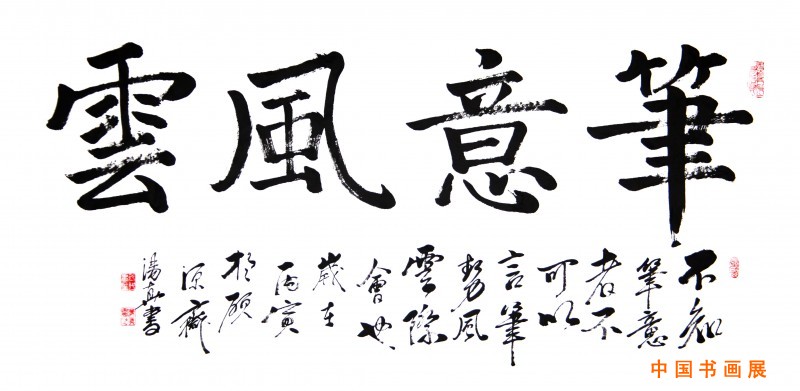 筆意風雲
不知
筆意
者不
可以
言筆
勢風
雲際
會也
歲在
丙寅
於硯
深齋
湯真書
中国书画展